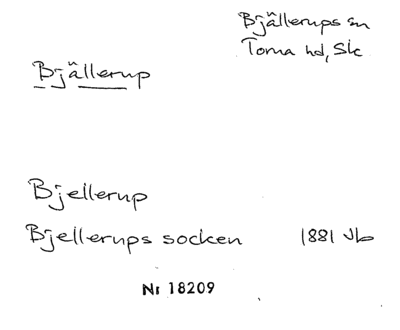 Bjällerups sn
Torna hd, Sk
Bjällerup
Bjellerup
Bjellerups socken 1881 Jb
Nr 18209